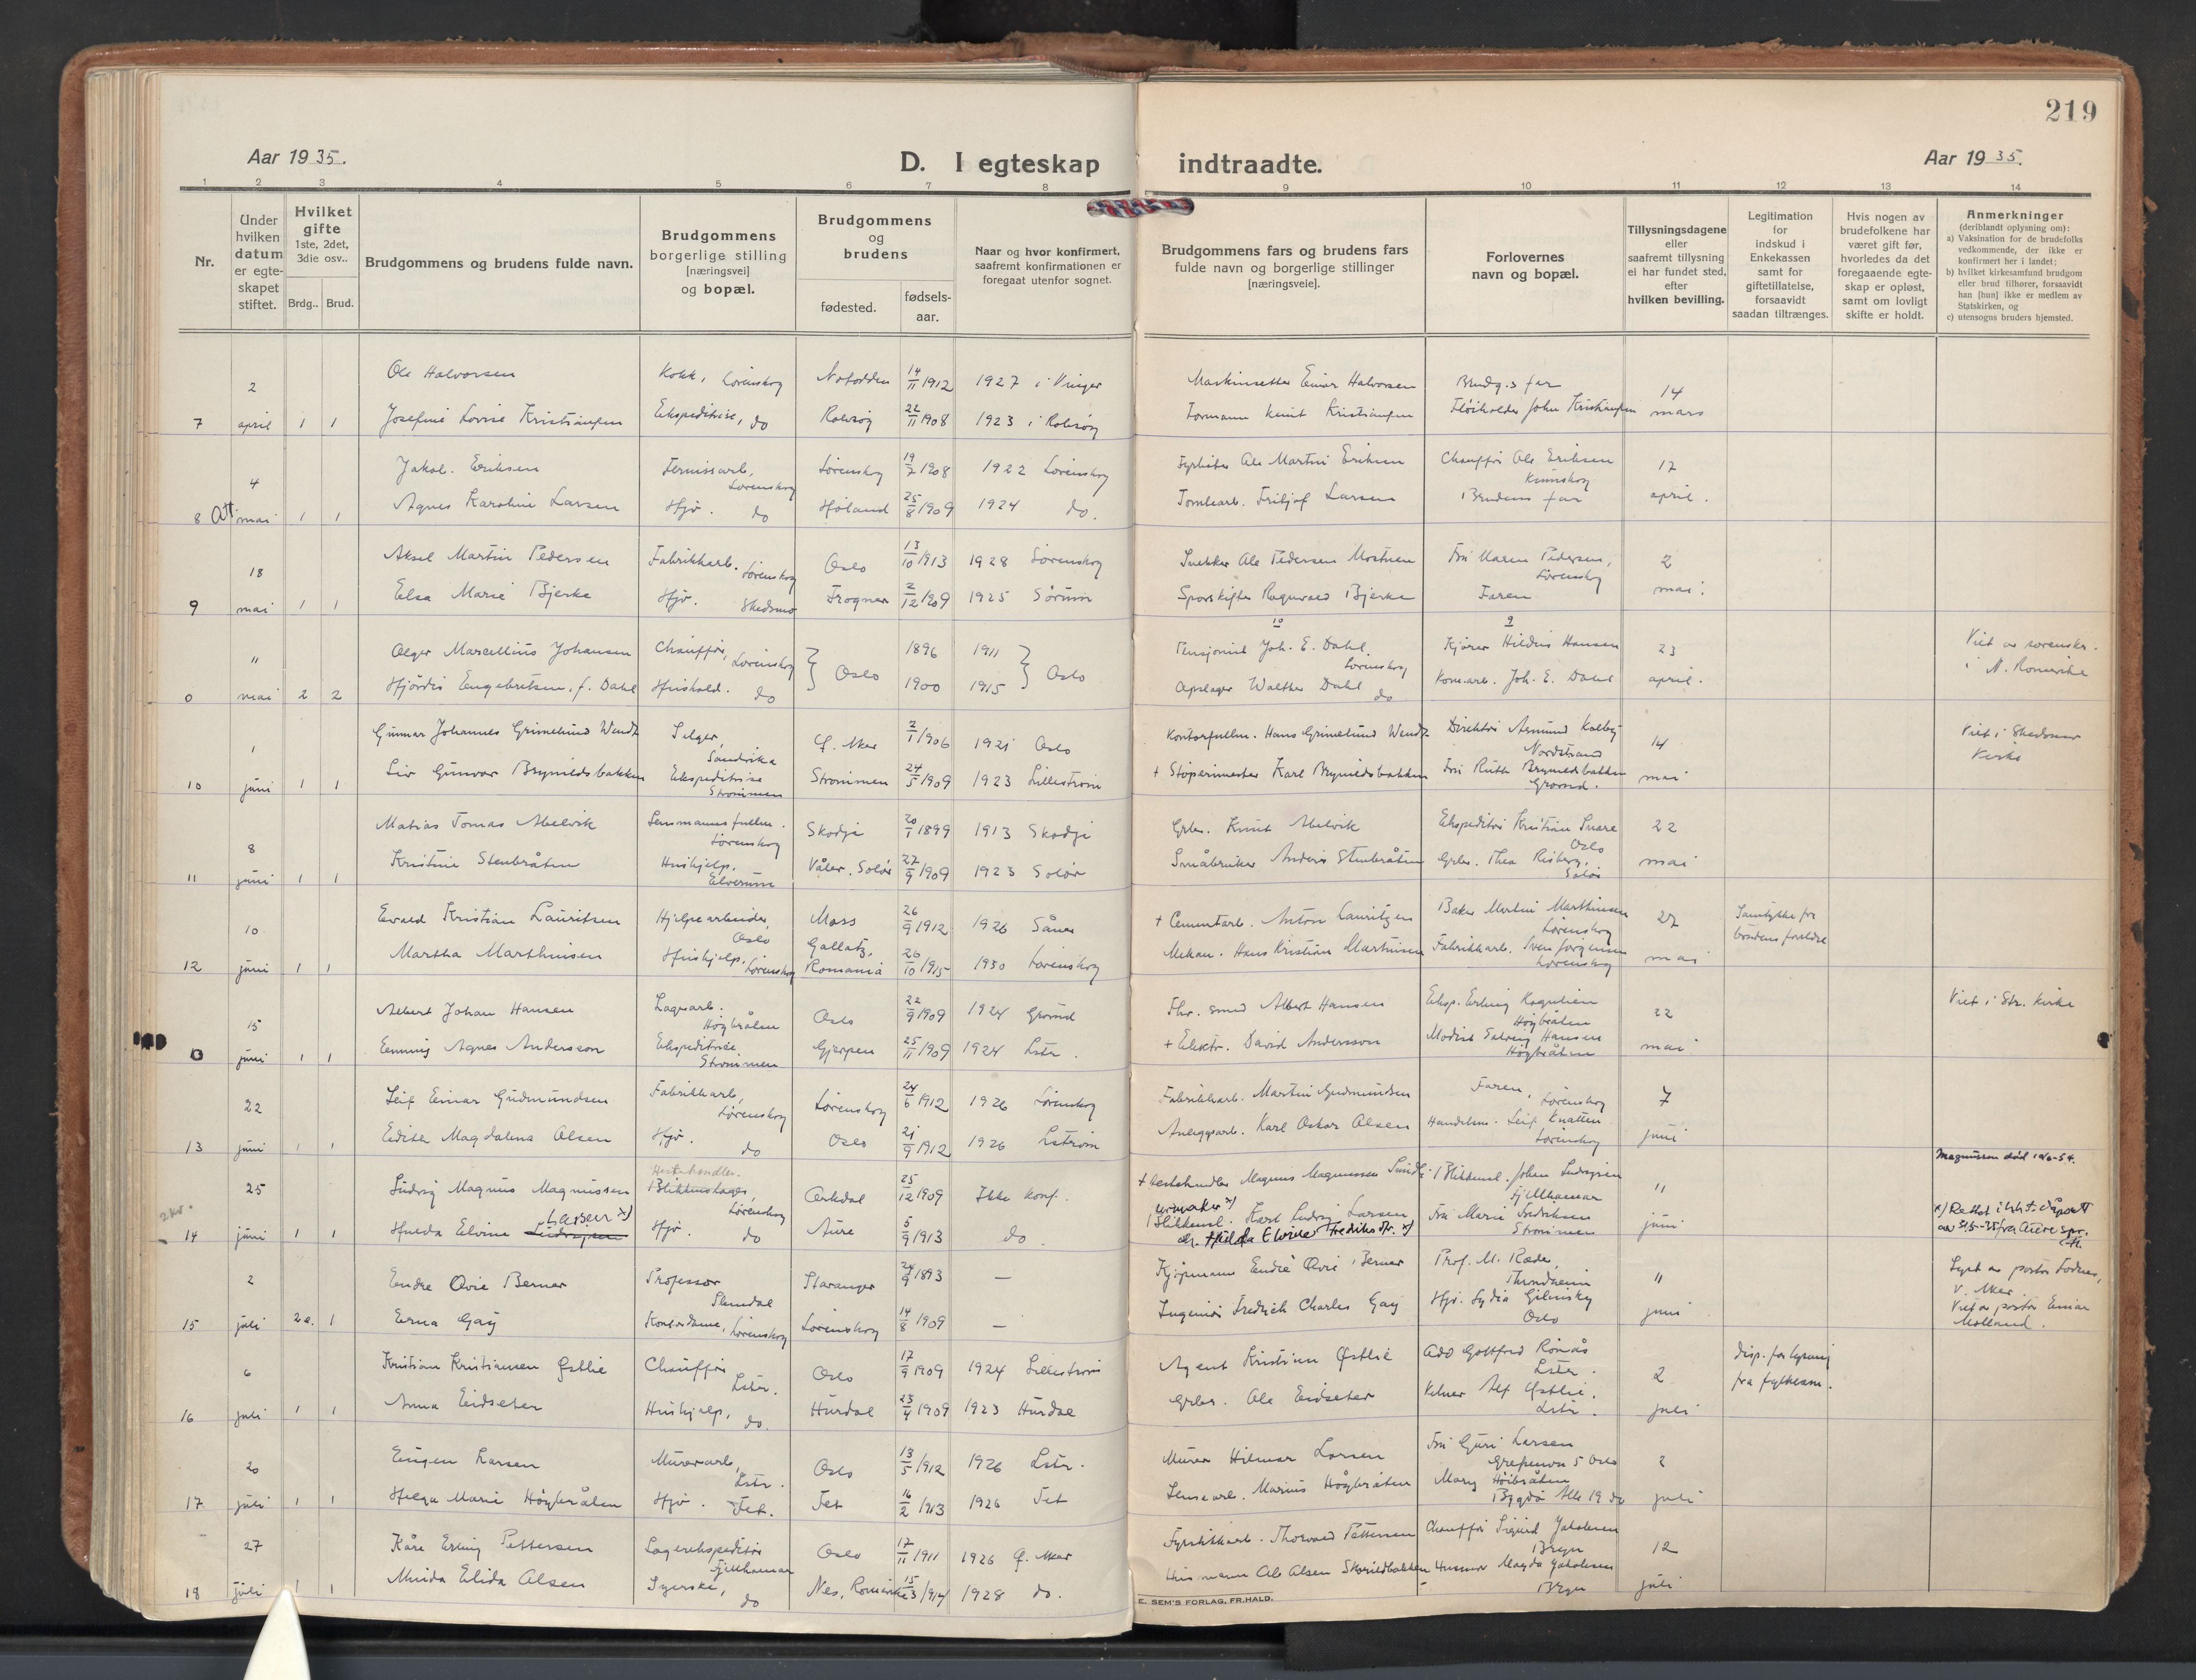 219
Aar 1935.
D. I egteskap indtraadte.
Aar 1935.
1 2 3 4 5 6 7 8 9 10 11 12 13 14
Nr.
Under hvilken datum er egteskapet stiftet.
Hvilket gifte 1ste, 2det, 3die osv..
Brdg.. Brud.
Brudgommens og brudens fulde navn.
Brudgommens borgerlige stilling [næringsvei] og bopæl.
Brudgommens og brudens
fødested.
fødselsaar.
Naar og hvor konfirmert, saafremt konfirmationen er foregaat utenfor sognet.
Brudgommens fars og brudens fars fulde navn og borgerlige stillinger [næringsveie].
Forlovernes navn og bopæl.
Tillysningsdagene eller saafremt tillysning ei har fundet sted, efter hvilken bevilling.
Legitimation for indskud i Enkekassen samt for giftetillatelse, forsaavidt saadan tiltrænges.
Hvis nogen av brudefolkene har været gift før, hvorledes da det foregaaende egteskap er opløst, samt om lovligt skifte er holdt.
Anmerkninger (deriblandt oplysning om): a) Vaksination for de brudefolks vedkommende, der ikke er konfirmert her i landet; b) hvilket kirkesamfund brudgom eller brud tilhører, forsaavidt han [hun] ikke er medlem av Statskirken, og c) utensogns bruders hjemsted.
2 Ole Halvorsen Kokk, Lørenskog Notodden 14/11 1912 1927 i Vinger Maskinsetter Einar Halvorsen Brudg.s far 14
7 april 1 1 Josefine Lovise Kristiansen Ekspeditrise, do Rolvsøy 22/11 1908 1923 i Rolvsøy Formann Knut Kristiansen John Kristiansen mars
4 Jakob Eriksen Fernissarb. Lørenskog Lørenskog 19/7 1908 1922 Lørenskog Fyrbøter Ole Martin Eriksen Chauffør Ole Eriksen 17
8 mai 1 1 Agnes Karoline Larsen Hjv. do Høland 25/8 1909 1924 do. Tomtearb. Fritjof Larsen Brudens far april.
18 Aksel Martin Pedersen Fabrikkarb. Lørenskog Oslo 13/10 1913 1928 Lørenskog Snekker Ole Pedersen Mostuen Fru Maren Pedersen, Lørenskog 2
9 mai 1 1 Elsa Marie Bjerke Hjv. Skedsmo Frogner 2/12 1909 1925 Sørum Sporskifter Ragnvald Bjerke Faren mai.
" Olger Marcellius Johansen Chauffør, Lørenskog Oslo 1896 1911 Oslo Pensjonist Joh. E. Dahl Lørenskog Kjører Hildus Hansen 23 Viet av sorenskr.
0 mai 2 2 Hjördis Engebretsen, f. Dahl Hushold. do 1900 1915 Opslager Walther Dahl do Kom.arb. Joh. E. Dahl april. i N. Romerike
1 Gunnar Johannes Grimelund Wendt Selger, Sandvika Ø. Aker 2/1 1906 1921 Oslo Kontorfullm. Hans Grimelund Wendt Direktør Asmund Kolby Nordstrand 14 Viet i Skedsmo
10 juni 1 1 Liv Gunvor Brynildsbakken Ekspeditrise Strømmen Strømmen 24/5 1909 1923 Lillestrøm + Støperimester Karl Brynildsbakken Fru Ruth Brynildsbakken Grorud. mai Kirke
8 Matias Tomas Abelvik Lensmannsfullm. Lørenskog Skodje 20/1 1899 1913 Skodje Grbr. Knut Abelvik Ekspeditør Kristian Snare Oslo 22
11 juni 1 1 Kristine Stenbråten Hushjelp. Elverum Våler, Solør 27/9 1909 1923 Solør Småbruker Anders Stenbråten Grbr. Thea Risberg. Solør mai
10 Ewald Kristian Lauritsen Hjelpearbeider, Oslo Moss 26/9 1912 1926 Såner + Cementarb. Anton Lauritzen Baker Martin Marthinsen Lørenskog 27 Samtykke fra
12 juni 1 1 Martha Marthinsen Hushjelp, Lørenskog Gallatz, Romania 26/10 1915 1930 Lørenskog Mekan. Hans Kristian Martinsen Fabrikkarb. Sven Jørgensen Lørenskog mai brudens foreldre
15 Albert Johan Hansen Lagerarb. Høybråten Oslo 22/9 1909 1924 Grorud Fhv. smed Albert Hansen Eksp. Erling Høybråten 22 Viet i Str. kirke
0 juni 1 1 Emmy Agnes Andersson Ekspeditrise Strømmen Gjerpen 25/11 1909 1924 Lstr. + Elektr. David Andersson Modist Solveig Hansen Høybråten mai
22 Leif Einar Gudmundsen Fabrikkarb, Lørenskog Lørenskog 24/6 1912 1926 Lørenskog Fabrikkarb. Martin Gudmundsen Faren, Lørenskog 7
13 juni 1 1 Edith Magdalena Olsen Hjv. do Oslo 21/9 1912 1926 Lstrøm Anleggsarb. Karl Oskar Olsen Handelsm. Leif Knatten Lørenskog juni
Magnussen død
25 Ludvig Magnus Magnussen Hestehandler. Blikkenslager, Lørenskog Orkdal 25/12 1909 Ikke konf. + Hestehandler Magnus Magnussen Blikkensl. Johan Ludvigsen Fjellhamar "
2 kr.
14 juni 1 1 Hulda Elvine Ludvigsen Larsen x) Hjv. do Aure 5/9 1913 do. urmaker x) Blikkensl. Karl Ludvig Larsen Fru Marie Fredriksen Strømmen juni
og Hilda Elvine Fredriksdtr. x)
x) Rettet i h.h.t. dåpsatt
av 31/5-35 fra Aure spr.
2 Endre Qvie Berner Professor Slemdal Stavanger 24/9 1893 — Kjøpmann Endre Qvie Berner Prof. M. Ræder, Throndheim " Lyst av pastor V. Aker.
15 juli 2 1 Erna Gay Kontordame, Lørenskog Lørenskog 14/8 1909 — Ingeniør Fredrich Charles Gay Hjv. Sydia Gilinsky Oslo juni Viet av pastor Einar Molland.
6 Kristian Kristiansen Østlie Chauffør Lstr. Oslo 17/9 1909 1924 Lillestrøm Agent Kristian Østlie Odd Gottfred Rönås Lstr. 2 Disp. for lysning
16 juli 1 1 Anna Eidseter Hushjelp, do Hurdal 23/4 1909 1923 Hurdal Grbr. Ole Eidseter Kelner Alf Østlie. Lstr. juli fra fylkesm.
20 Eugen Larsen Murerarb, Lstr. Oslo 13/5 1912 1926 Lstr. Murer Hilmar Larsen Fru Guri Larsen Oslo 2
17 juli 1 1 Helga Marie Høybråten Hjv. Fet. Fet 16/2 1913 1926 Fet Lensearb. Marius Høybråten Mary Høibråten Bygdø Allé 19 do juli
27 Kåre Erling Pettersen Lagerekspeditør Fjellhamar Oslo 17/11 1911 1926 Ø. Aker Fyrstikkarb. Thorvald Pettersen Chauffør Sigurd Jakobsen Bryn 12
18 juli 1 1 Minda Elida Olsen Syerske, do Nes, Romerike 15/3 1914 1928 do. Husmann Ole Olsen Skovildbakken Husmor Magda Jakobsen Bryn juli
E. SEM'S FORLAG, FR.HALD.